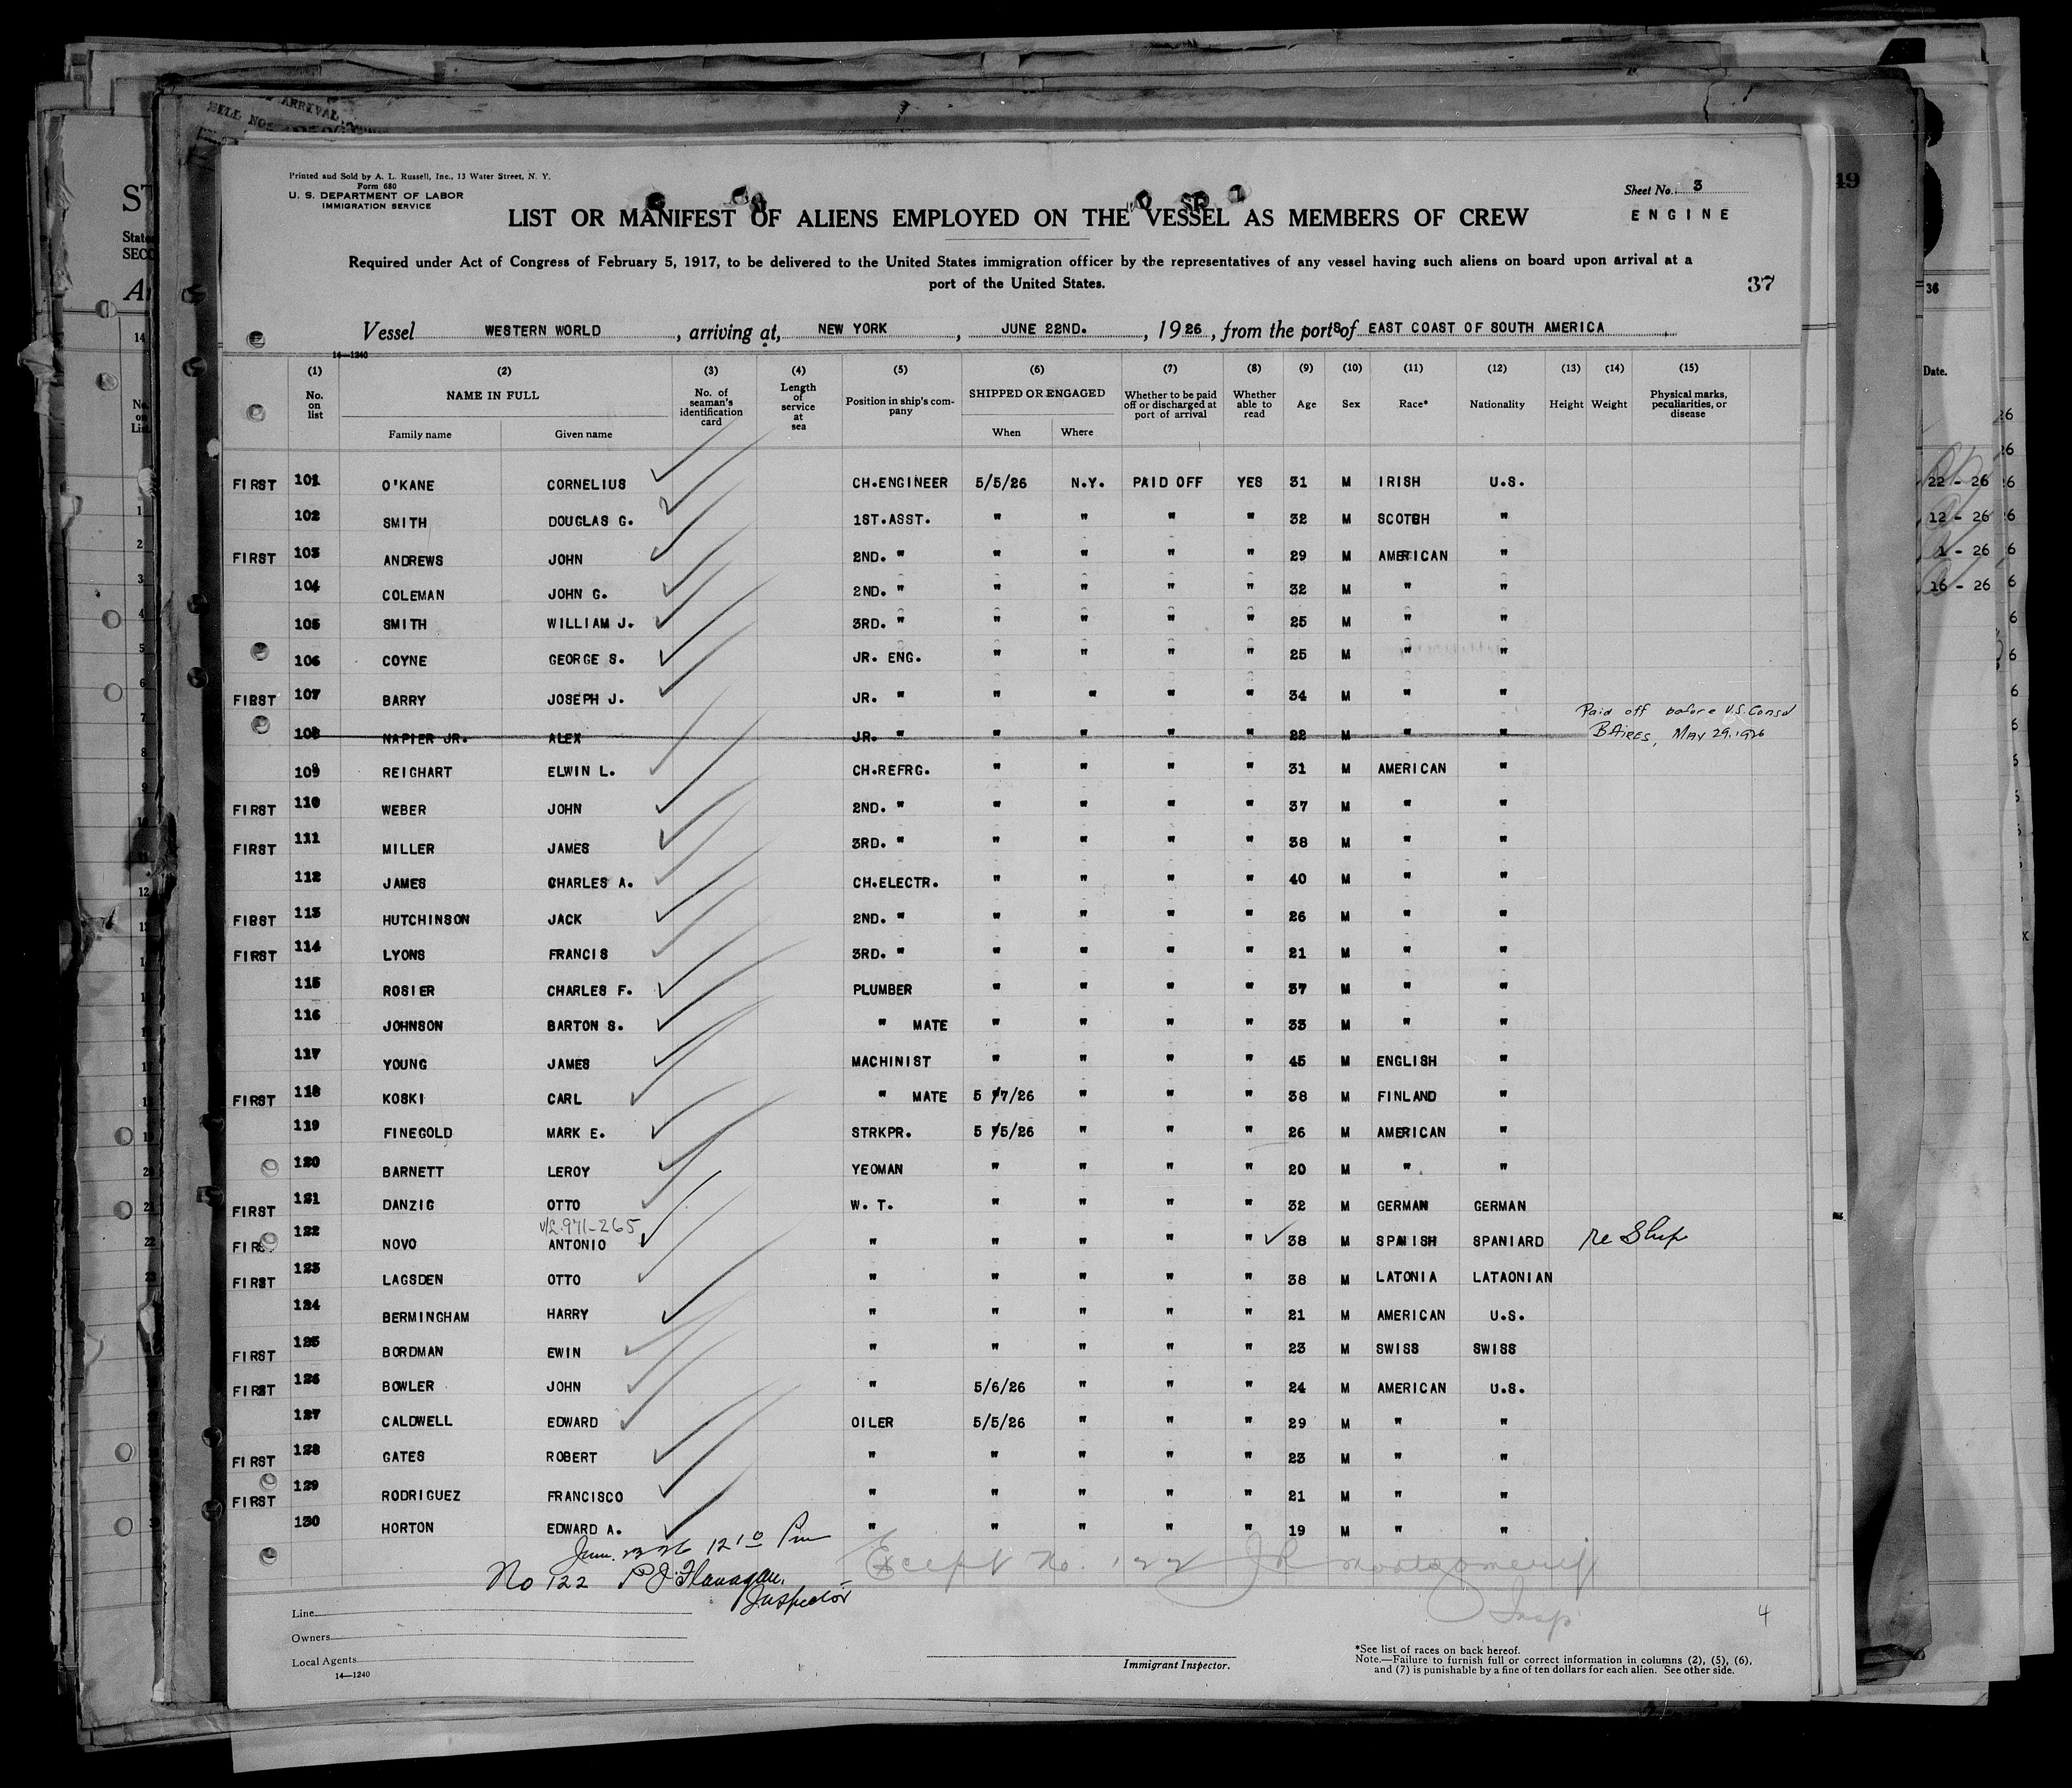 ARRIVAL
Printed and Sold by A. L. Russell, Inc., 13 Water Street, N. Y.
Form 680
U. S. DEPARTMENT OF LABOR
IMMIGRATION SERVICE
Sheet No. 3
ENGINE
LIST OR MANIFEST OF ALIENS EMPLOYED ON THE VESSEL AS MEMBERS OF CREW
Required under Act of Congress of February 5, 1917, to be delivered to the United States immigration officer by the representatives of any vessel having such aliens on board upon arrival at a
port of the United States.
37
Vessel WESTERN WORLD, arriving at, NEW YORK, JUNE 22ND., 1926, from the ports of EAST COAST OF SOUTH AMERICA
14—1240
(1) (2) (3) (4) (5) (6) (7) (8) (9) (10) (11) (12) (13) (14) (15)
No. on list NAME IN FULL Family name Given name No. of seaman's identification card Length of service at sea Position in ship's company SHIPPED OR ENGAGED When Where Whether to be paid off or discharged at port of arrival Whether able to read Age Sex Race* Nationality Height Weight Physical marks, peculiarities, or disease
FIRST 101 O'KANE CORNELIUS CH.ENGINEER 5/5/26 N.Y. PAID OFF YES 31 M IRISH U.S.
102 SMITH DOUGLAS G. 1ST.ASST. " " " " 32 M SCOTCH "
FIRST 103 ANDREWS JOHN 2ND. " " " " " 29 M AMERICAN "
104 COLEMAN JOHN G. 2ND. " " " " " 32 M " "
105 SMITH WILLIAM J. 3RD. " " " " " 25 M " "
106 COYNE GEORGE S. JR. ENG. " " " " 25 M " "
FIRST 107 BARRY JOSEPH J. JR. " " " " " 34 M " "
108 NAPIER JR. ALEX JR. " " " " " 22 M " " Paid off before U.S. Consul
B AIRES, MAY 29. 1926
109 REIGHART ELWIN L. CH.REFRG. " " " " 31 M AMERICAN "
FIRST 110 WEBER JOHN 2ND. " " " " " 37 M " "
FIRST 111 MILLER JAMES 3RD. " " " " " 38 M " "
112 JAMES CHARLES A. CH.ELECTR. " " " " 40 M " "
FIRST 113 HUTCHINSON JACK 2ND. " " " " " 26 M " "
FIRST 114 LYONS FRANCIS 3RD. " " " " " 21 M " "
115 ROSIER CHARLES F. PLUMBER " " " " 37 M " "
116 JOHNSON BARTON S. " MATE " " " " 33 M " "
117 YOUNG JAMES MACHINIST " " " " 45 M ENGLISH "
FIRST 118 KOSKI CARL " MATE 5/7/26 " " " 38 M FINLAND "
119 FINEGOLD MARK E. STRKPR. 5/5/26 " " " 26 M AMERICAN "
120 BARNETT LEROY YEOMAN " " " " 20 M " "
FIRST 121 DANZIG OTTO W. T. " " " " 32 M GERMAN GERMAN
V/L.971-265
FIRST 122 NOVO ANTONIO " " " " " 38 M SPANISH SPANIARD re Ship
FIRST 123 LAGSDEN OTTO " " " " " 38 M LATONIA LATAONIAN
124 BERMINGHAM HARRY " " " " " 21 M AMERICAN U.S.
FIRST 125 BORDMAN EWIN " " " " " 23 M SWISS SWISS
FIRST 126 BOWLER JOHN " 5/6/26 " " " 24 M AMERICAN U.S.
127 CALDWELL EDWARD OILER 5/5/26 " " " 29 M " "
FIRST 128 GATES ROBERT " " " " " 23 M " "
FIRST 129 RODRIGUEZ FRANCISCO " " " " " 21 M " "
130 HORTON EDWARD A. " " " " " 19 M " "
June 23 26 12 10 Pm
No 122 P J Flanagan.
Inspector
Except No. 122 J R Montgomery
Insp
4
Line
Owners
Local Agents
14—1240
Immigrant Inspector.
*See list of races on back hereof.
Note.—Failure to furnish full or correct information in columns (2), (5), (6),
and (7) is punishable by a fine of ten dollars for each alien. See other side.
49
36
Date.
22 - 26
12 - 26
1 - 26
16 - 26